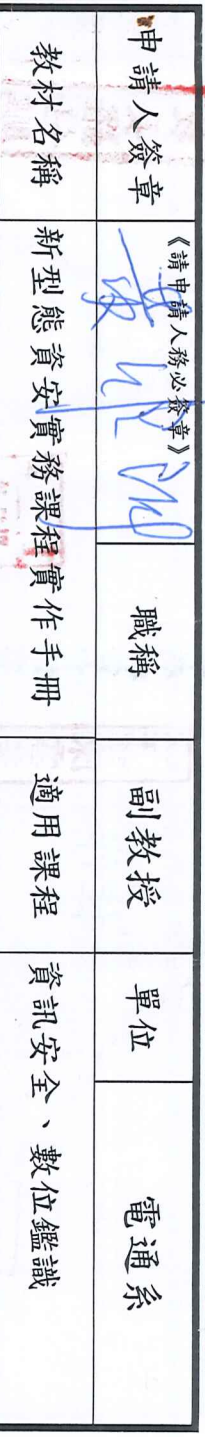 申請人簽章 《請申請人務必簽章》 職稱 副教授 單位 電通系
教材名稱 新型態資安實務課程實作手冊 適用課程 資訊安全、數位鑑識